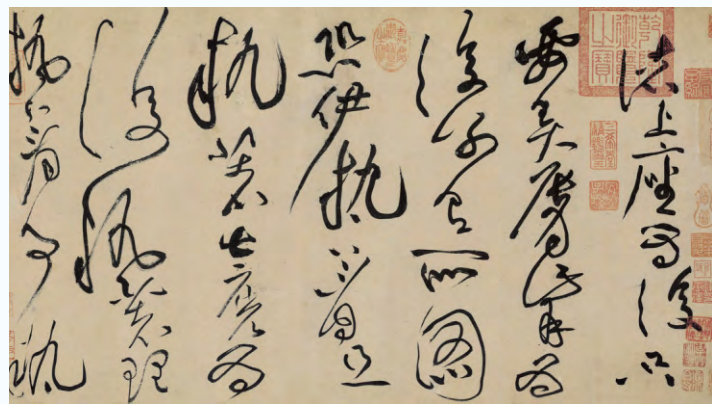 諸上座為復只
要弄脣觜為
復別有所圖
恐伊執著且
執著甚麼為
復執著理
執著事執
乾隆御覽之寶